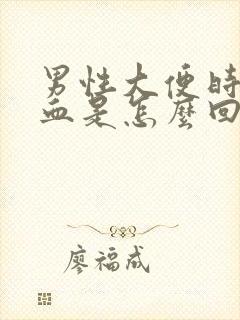 男性大便時
血是怎麼回
廖福成